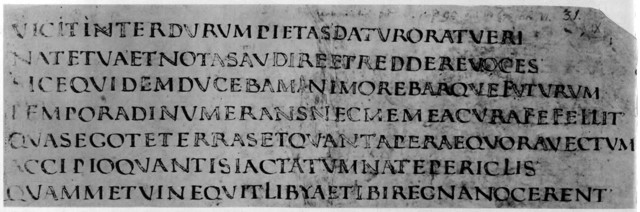 VICITINTERDVRVMPIETASDATVRORATVERI
NATETVAETNOTASAVDIREETREDDEREVOCES
SICEQVIDEMDVCEBAMANIMOREBARQVEFVTVRVM
TEMPORADINVMERANSNECMEMEACVRAFEFELLIT
QVASEGOTETERRASETQVANTAPERAEQVORAVECTVM
ACCIPIOQVANTISIACTATVMNATEPERICLIS
QVAMMETVINEQVITLIBYAETIBIREGNANOCERENT